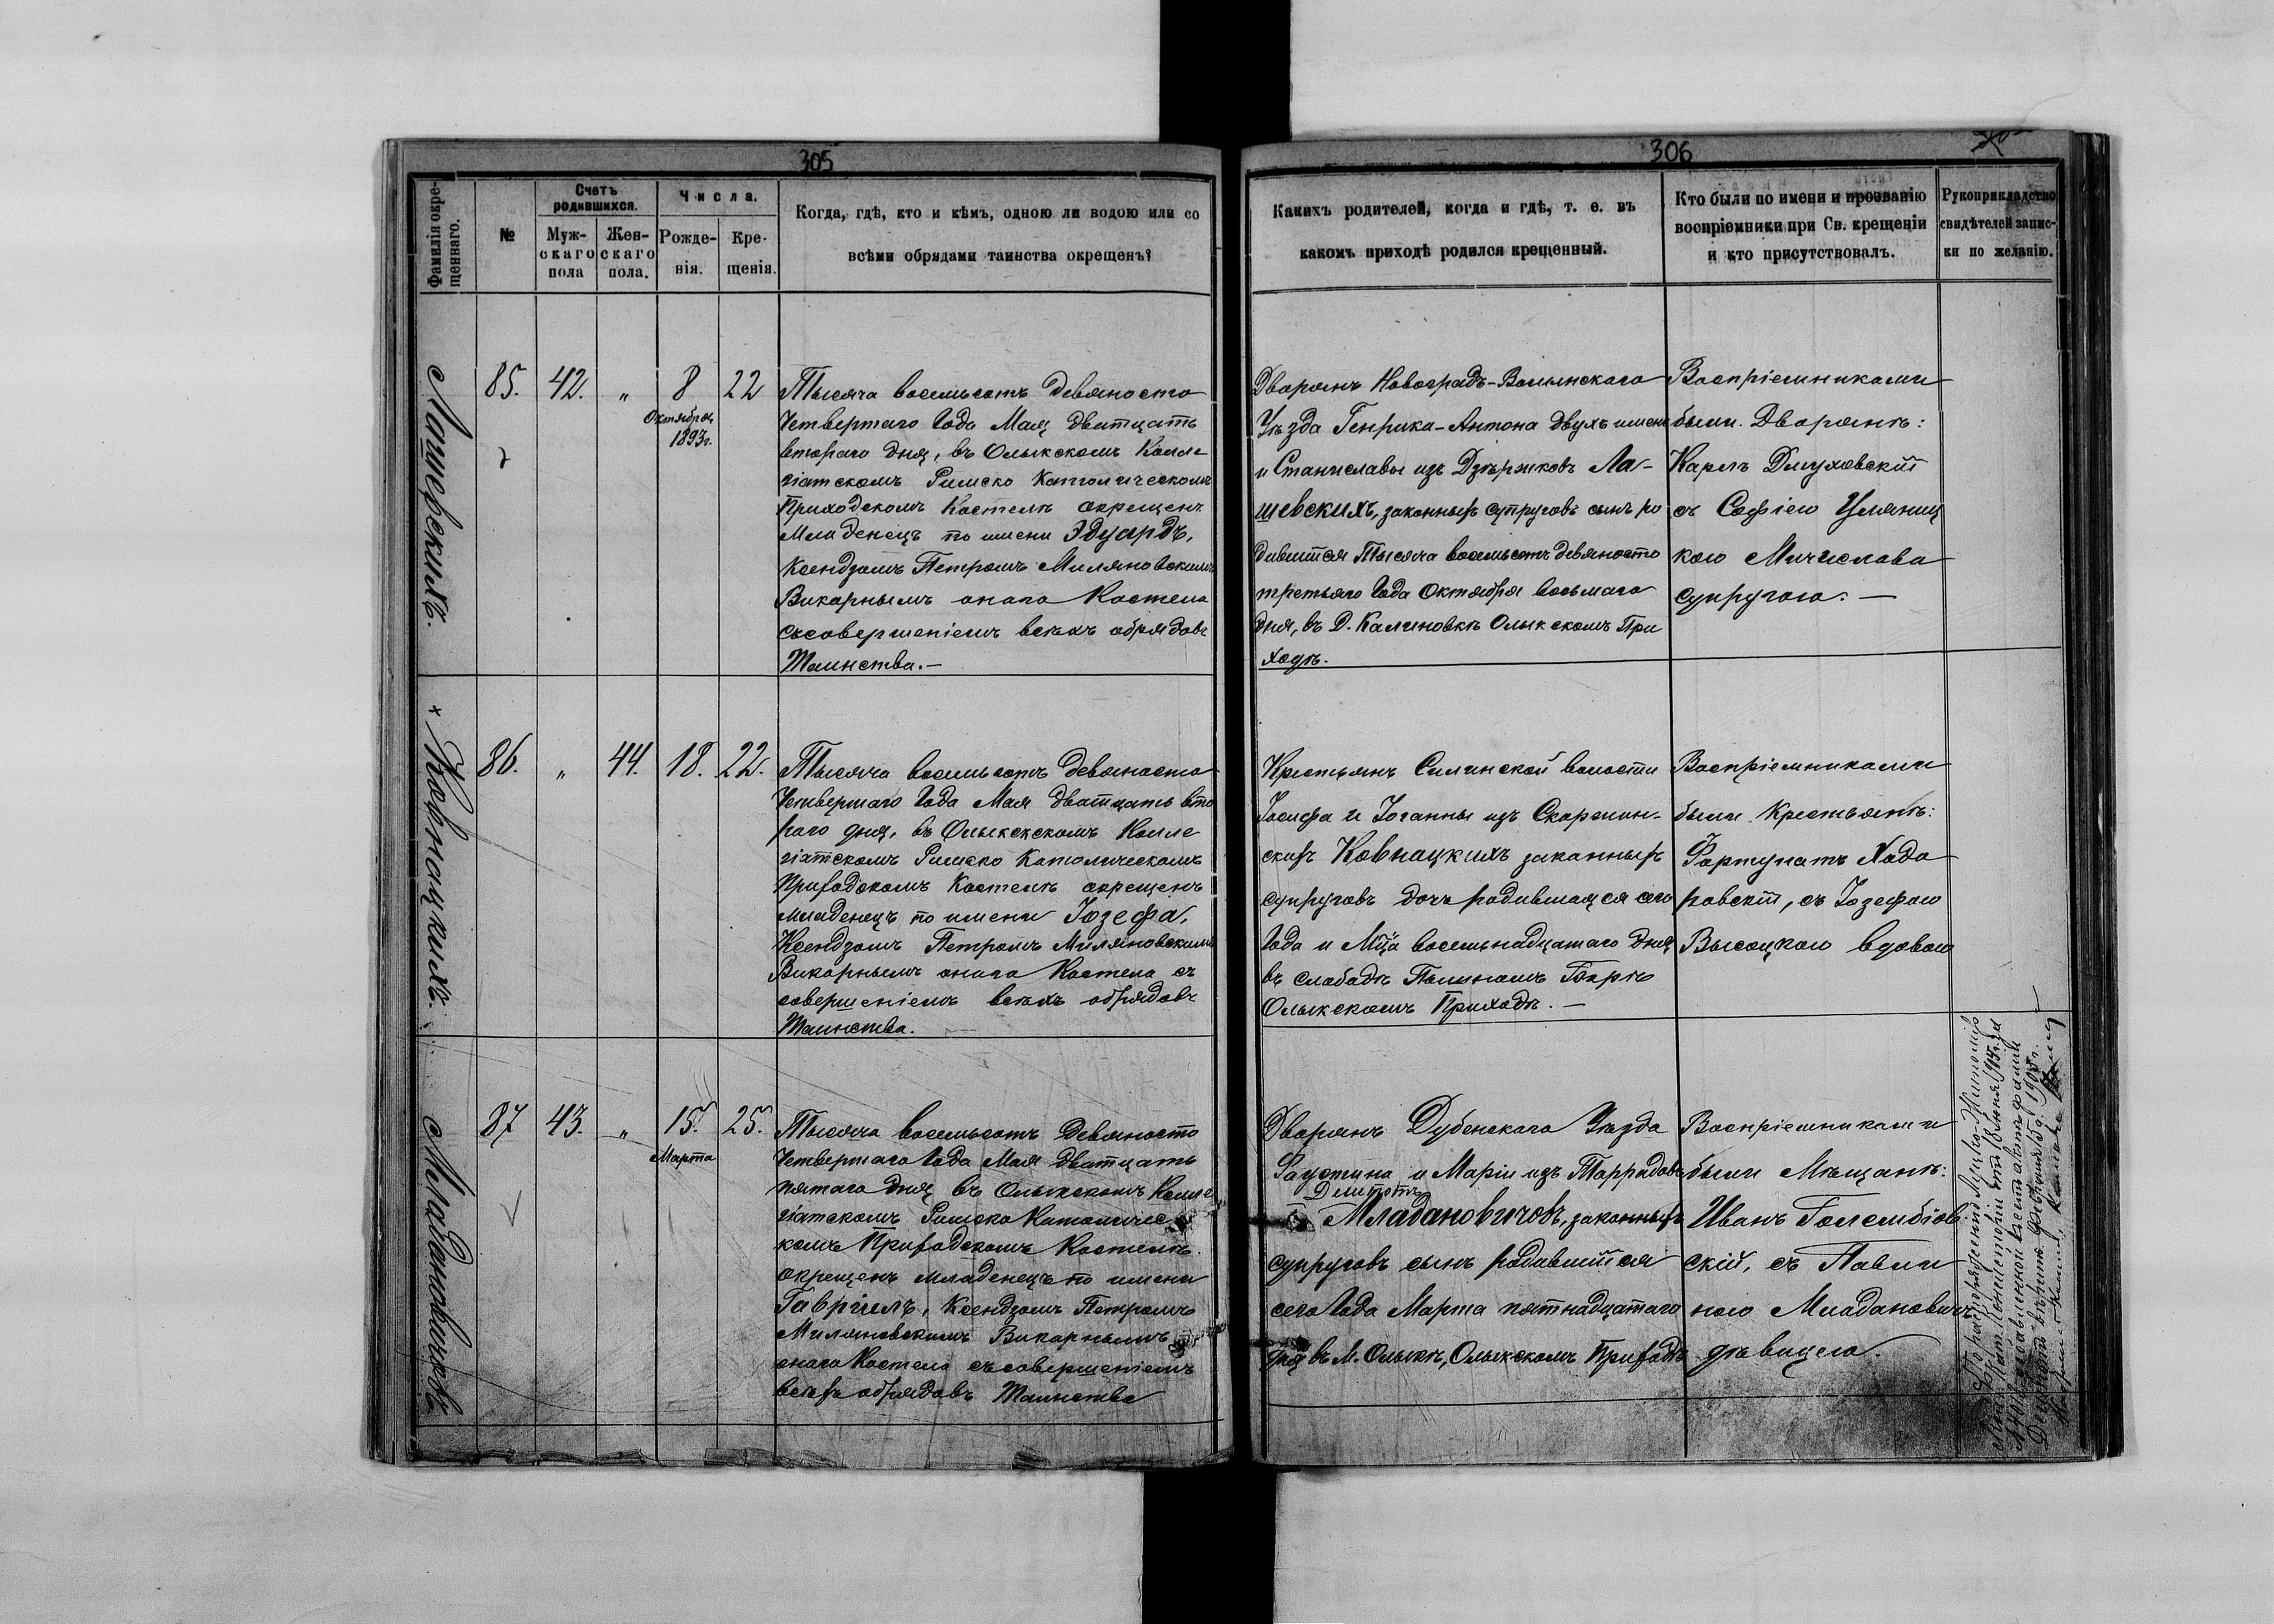 305
Фамилія окре-
щеннаго.
№
Счетъ
родившихся.
Муж-
скаго
пола
Жен-
скаго
пола.
Числа.
Рожде-
нія.
Кре-
щенія.
Когда, гдѣ, кто и кѣмъ, одною ли водою или со
всѣми обрядами таинства окрещенъ?
Лашевскихъ.
85.
42.
"
8
Октября
1893г.
22
Тысяча восемьсотъ девяносто
Четвертаго Года Мая Дватцать
втораго дня, въ Олыкскомъ Колле
гіатскомъ Римско Католическомъ
Приходскомъ Костелѣ окрещенъ
Младенецъ по имени Эдуардъ,
Ксендзомъ Петромъ Миляновскимъ
Викарнымъ онаго Костела
съ совершеніемъ всѣхъ обрядовъ
Таинства.—
× Ковнацкихъ.
86.
"
44.
18.
22.
Тысяча восемьсотъ девяносто
Четвертаго Года Мая дватцать вто
раго дня, въ Олыкскскомъ Колле
гіатскомъ Римско Католическомъ
Приходскомъ Костелѣ окрещенъ
младенецъ по имени Іозефа,
Ксендзомъ Петромъ Миляновскимъ
Викарнымъ онаго Костела съ
совершеніемъ всѣхъ обрядовъ
Таинства.
Младановичовъ
87
43.
"
15.
Марта
25.
Тысяча восемьсотъ девяносто
Четвертаго Года Мая дватцать
пятаго дня въ Олыкскомъ Колле
гіатскомъ Римско Католичес
комъ Приходскомъ Костелѣ
окрещенъ младенецъ по имени
Гавріилъ, Ксендзомъ Петромъ
Миляновскимъ Викарнымъ
онаго Костела съ совершеніемъ
всѣхъ обрядовъ Таинства
306
Какихъ родителей, когда и гдѣ, т. е. въ
какомъ приходѣ родился крещенный.
Кто были по имени и прозванію
воспріемники при Св. крещеніи
и кто присутствовалъ.
Рукоприкладство
свидѣтелей запис-
ки по желанію.
Дворянъ Новоградъ-Волынскаго
Уѣзда Генрика-Антона двухъ именъ
и Станиславы изъ Дзѣржковъ Ла-
шевскихъ, законныхъ супруговъ сынъ ро
дившійся Тысяча восемьсотъ девяносто
третьяго Года Октября восьмаго
дня, въ Д. Калиновкѣ Олыкскомъ При
ходѣ.
Воспріемниками
были Дворянѣ:
Карлъ Длуховскій
съ Софіею Уляниц
кою Мичислава
супругою.—
Крестьянъ Силинской волости
Іосифа и Іоганны изъ Скоржин-
скихъ Ковнацкихъ законныхъ
супруговъ дочь родившаяся сего
Года и Мца восемьнадцатаго дня
въ слободѣ
Олыкскомъ Приходѣ.—
Воспріемниками
были Крестьянѣ:
Фортунатъ Ходо
ровскій, съ Іозефою
Высоцкою вдовою
Дворянъ Дубенскаго Уѣзда
Фаустина и Маріи изъ
Младановичовъ, законныхъ
супруговъ сынъ родившійся
сего Года Марта пятнадцатаго
дня въ М. Олыкѣ, Олыкскомъ Приходѣ
Воспріемниками
были Мѣщанѣ:
Иванъ Голембіов
скій, съ Павли
ною Младановичъ
дѣвицею.
По распоряженію Луцко-Житомір